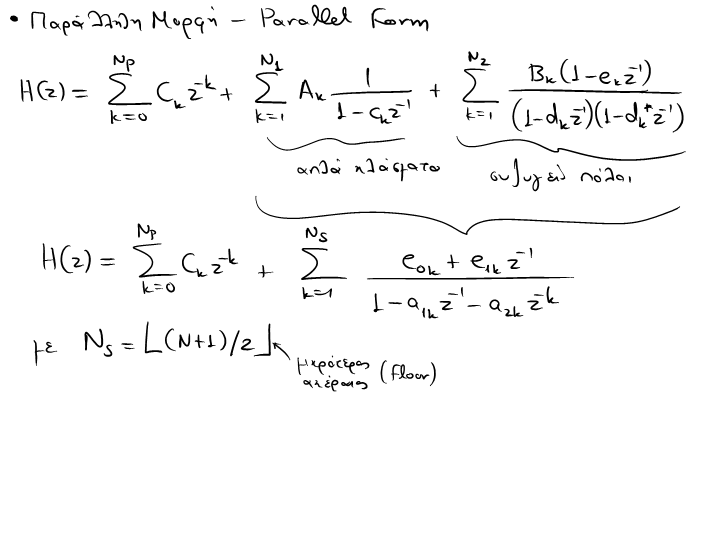 • Παράλληλη Μορφή – Parallel Form
H(z) = \sum_{k=0}^{N_p} C_k z^{-k} + \sum_{k=1}^{N_1} A_k \frac{1}{1-c_k z^{-1}} + \sum_{k=1}^{N_2} \frac{B_k(1-e_k z^{-1})}{(1-d_k z^{-1})(1-d_k^* z^{-1})}
απλά κλάσματα συζυγείς πόλοι
H(z) = \sum_{k=0}^{N_p} C_k z^{-k} + \sum_{k=1}^{N_s} \frac{e_{0k} + e_{1k} z^{-1}}{1-a_{1k} z^{-1} - a_{2k} z^{-k}}
με N_s = ⌊(N+1)/2⌋
μικρότερος
ακέραιος (floor)